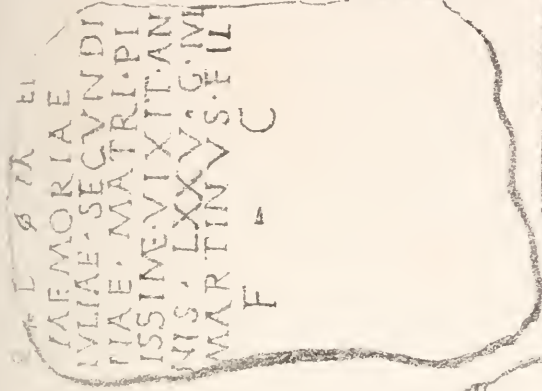 MEMORIAE
IVLIAE·SECVNDI
NAE·MATRI·PI
ISSIME·VIXIT·AN
NIS·LXXV·G·IVL
MARTINVS·FIL
F · C